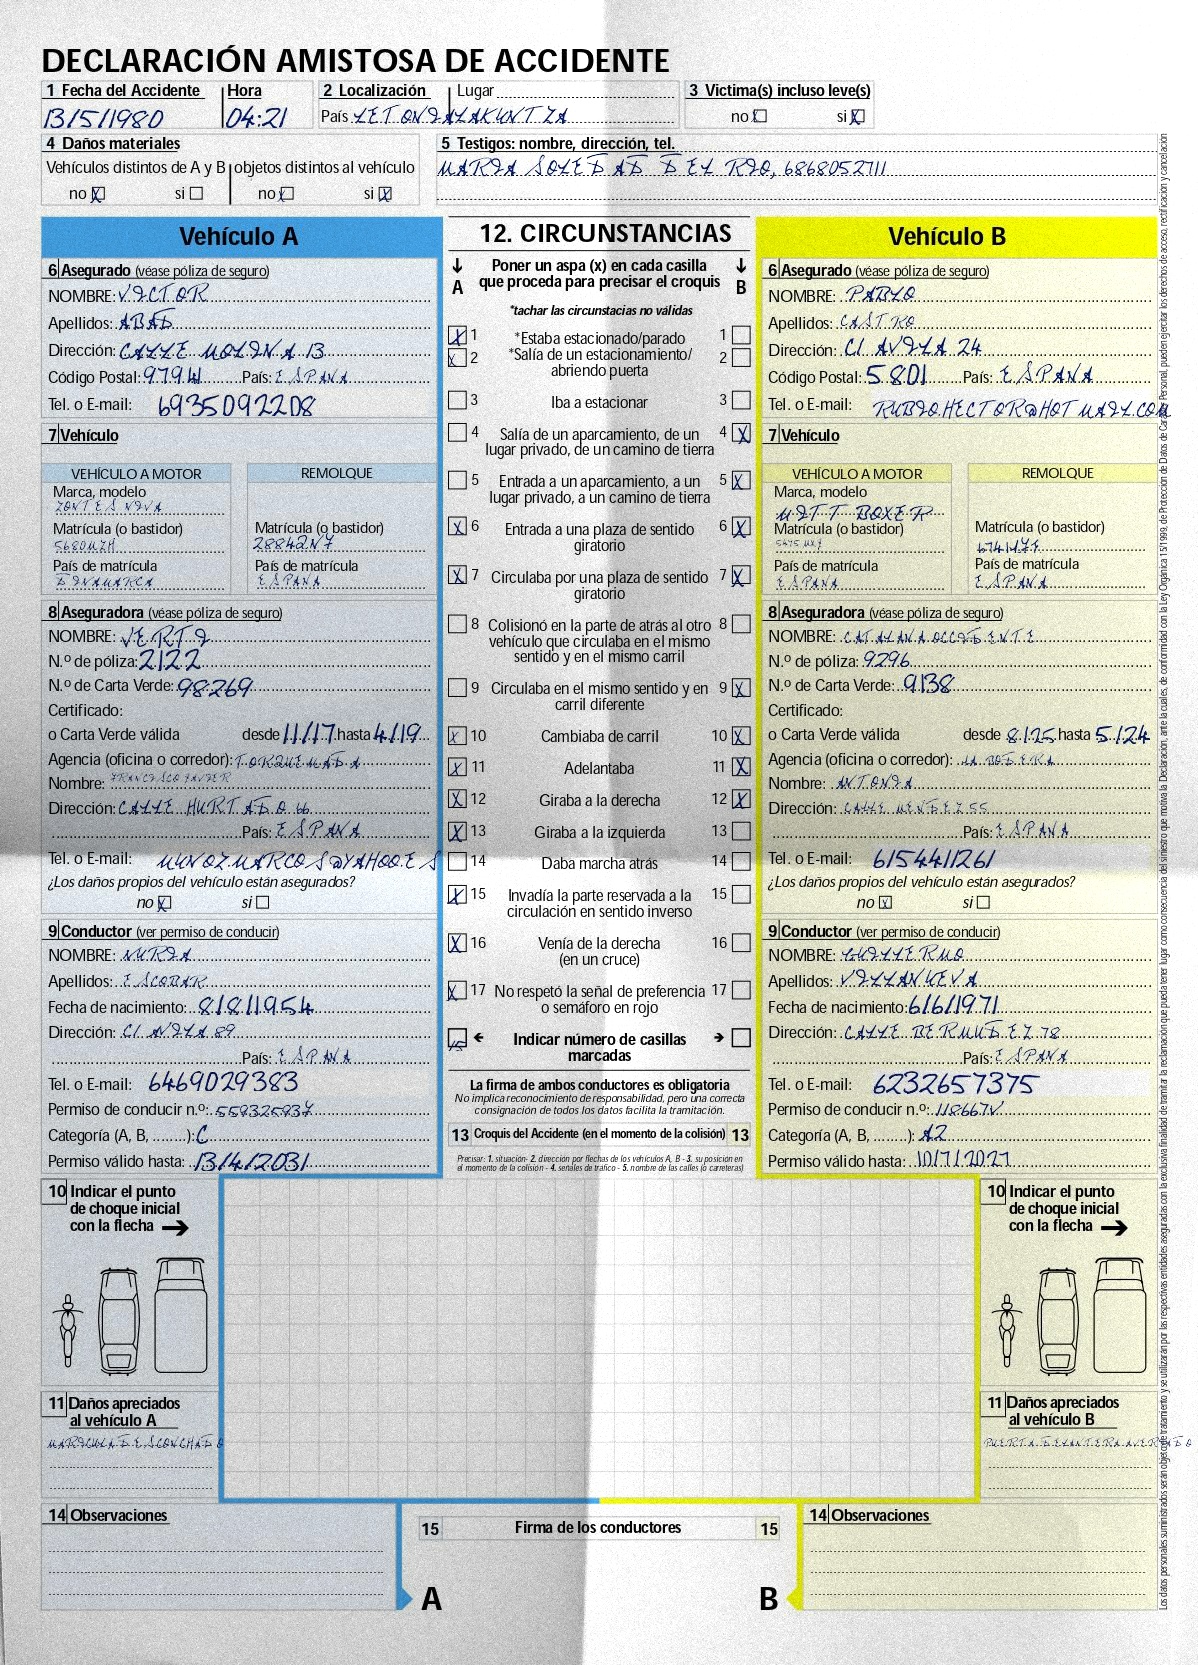 DECLARACIÓN AMISTOSA DE ACCIDENTE
1 Fecha del Accidente Hora 2 Localización Lugar 3 Victima(s) incluso leve(s)
13/5/1980 04:21 País LETONIA LAKUNTZA no X si X
4 Daños materiales 5 Testigos: nombre, dirección, tel.
Vehículos distintos de A y B objetos distintos al vehículo MARIA SOLEDAD DEL RIO, 6868052711
no X si no X si X
Vehículo A
6 Asegurado (véase póliza de seguro)
NOMBRE: VICTOR
Apellidos: ABAD
Dirección: CALLE MOLINA 13
Código Postal: 97941 País: ESPANA
Tel. o E-mail: 6935092208
7 Vehículo
VEHÍCULO A MOTOR REMOLQUE
Marca, modelo
ZONTES NIVA
Matrícula (o bastidor) Matrícula (o bastidor)
5680MZH 28842N7
País de matrícula País de matrícula
DINAMARCA ESPANA
8 Aseguradora (véase póliza de seguro)
NOMBRE: VERTI
N.º de póliza: 2122
N.º de Carta Verde: 98269
Certificado:
o Carta Verde válida desde 11/17 hasta 4/19
Agencia (oficina o corredor): TORQUEMADA
Nombre: FRANCISCO JAVIER
Dirección: CALLE HURTADO 66
País: ESPANA
Tel. o E-mail: MUNOZMARCOS@YAHOO.ES
¿Los daños propios del vehículo están asegurados?
no X si
9 Conductor (ver permiso de conducir)
NOMBRE: NURIA
Apellidos: ESCOBAR
Fecha de nacimiento: 8/8/1954
Dirección: C/ AVILA 89
País: ESPANA
Tel. o E-mail: 6469029383
Permiso de conducir n.º:
Categoría (A, B, ........): C
Permiso válido hasta: 13/4/2031
10 Indicar el punto
de choque inicial
con la flecha
11 Daños apreciados
al vehículo A
MARICULA DESCONCHADO
14 Observaciones
12. CIRCUNSTANCIAS
A Poner un aspa (x) en cada casilla B
que proceda para precisar el croquis
*tachar las circunstacias no válidas
X 1 *Estaba estacionado/parado 1
X 2 *Salía de un estacionamiento/ 2
abriendo puerta
3 Iba a estacionar 3
4 Salía de un aparcamiento, de un 4 X
lugar privado, de un camino de tierra
5 Entrada a un aparcamiento, a un 5 X
lugar privado, a un camino de tierra
X 6 Entrada a una plaza de sentido 6 X
giratorio
X 7 Circulaba por una plaza de sentido 7 X
giratorio
8 Colisionó en la parte de atrás al otro 8
vehículo que circulaba en el mismo
sentido y en el mismo carril
9 Circulaba en el mismo sentido y en 9 X
carril diferente
X 10 Cambiaba de carril 10 X
X 11 Adelantaba 11 X
X 12 Giraba a la derecha 12 X
X 13 Giraba a la izquierda 13
14 Daba marcha atrás 14
X 15 Invadía la parte reservada a la 15
circulación en sentido inverso
X 16 Venía de la derecha 16
(en un cruce)
X 17 No respetó la señal de preferencia 17
o semáforo en rojo
Indicar número de casillas
marcadas
La firma de ambos conductores es obligatoria
No implica reconocimiento de responsabilidad, pero una correcta
consignación de todos los datos facilita la tramitación.
13 Croquis del Accidente (en el momento de la colisión) 13
Precisar: 1. situación- 2. dirección por flechas de los vehículos A, B - 3. su posición en
el momento de la colisión - 4. señales de tráfico - 5. nombre de las calles (o carreteras)
15 Firma de los conductores 15
A B
Vehículo B
6 Asegurado (véase póliza de seguro)
NOMBRE: PABLO
Apellidos: CASTRO
Dirección: C/ AVILA 24
Código Postal: 5801 País: ESPANA
Tel. o E-mail: RUBIO.HECTOR@HOTMAIL.COM
7 Vehículo
VEHÍCULO A MOTOR REMOLQUE
Marca, modelo
MITT BOXER
Matrícula (o bastidor) Matrícula (o bastidor)
País de matrícula País de matrícula
ESPANA ESPANA
8 Aseguradora (véase póliza de seguro)
NOMBRE: CATALANA OCCIDENTE
N.º de póliza: 9296
N.º de Carta Verde: 9138
Certificado:
o Carta Verde válida desde 8/25 hasta 5/24
Agencia (oficina o corredor): LA BODERA
Nombre: ANTONIA
Dirección: CALLE MENDEZ 55
País: ESPANA
Tel. o E-mail: 6154411261
¿Los daños propios del vehículo están asegurados?
no X si
9 Conductor (ver permiso de conducir)
NOMBRE: GUILLERMO
Apellidos: VILLANUEVA
Fecha de nacimiento: 6/6/1971
Dirección: CALLE BERMUDEZ 78
País: ESPANA
Tel. o E-mail: 6232657375
Permiso de conducir n.º: 118667V
Categoría (A, B, ........): A2
Permiso válido hasta: 10/7/2027
10 Indicar el punto
de choque inicial
con la flecha
11 Daños apreciados
al vehículo B
PUERTA DELANTERA AVERIADO
14 Observaciones
Los datos personales suministrados serán objeto de tratamiento y se utilizarán por las respectivas entidades aseguradas con la exclusiva finalidad de tramitar la reclamación que pueda tener lugar como consecuencia del siniestro que motiva la Declaración, ante la cuales, de conformidad con la Ley Orgánica 15/1999, de Protección de Datos de Carácter Personal, pueden ejercitar los derechos de acceso, rectificación y cancelación